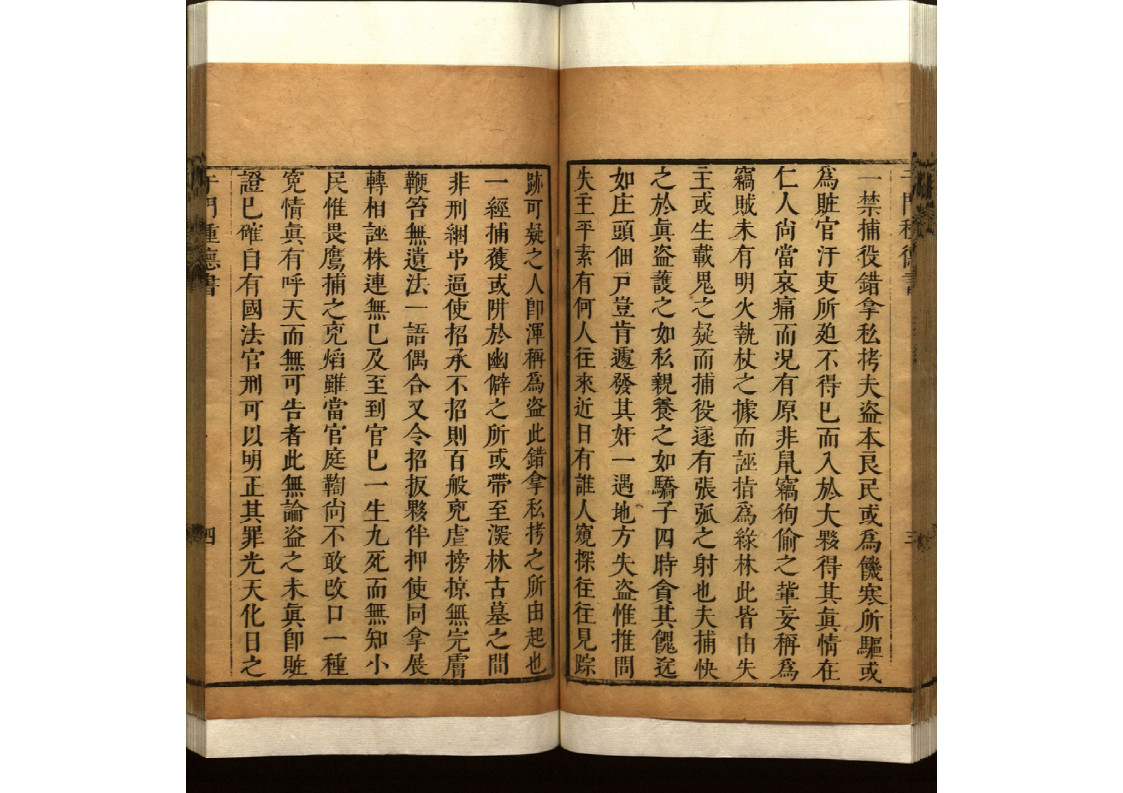 一禁捕役錯拿私拷夫盗本良民或爲饑寒所驅或
爲賍官汙吏所廹不得巳而入於大夥得其眞情在
仁人尚當哀痛而况有原非鼠竊狥偷之軰妄稱爲
竊賊未有明火執杖之據而誣指爲綠林此皆由失
主或生載鬼之疑而捕役遂有張弧之射也夫捕快
之於眞盗護之如私親養之如驕子四時貪其餽迄
如庄頭佃戸豈肯遽發其奸一遇地方失盗惟推問
失主平素有何人往來近日有誰人窺探往往見踪
跡可疑之人卽渾稱爲盗此錯拿私拷之所由起也
一經捕獲或阱於幽僻之所或帶至深林古墓之間
非刑綑弔逼使招承不招則百般兇虐搒掠無完膚
鞭笞無遺法一語偶合又令招扳夥伴押使同拿展
轉相誣株連無巳及至到官巳一生九死而無知小
民惟畏鷹捕之兇焰雖當官庭鞫尚不敢改口一種
寃情眞有呼天而無可告者此無論盗之未眞卽賍
證巳確自有國法官刑可以明正其罪光天化日之
于門種德書
四